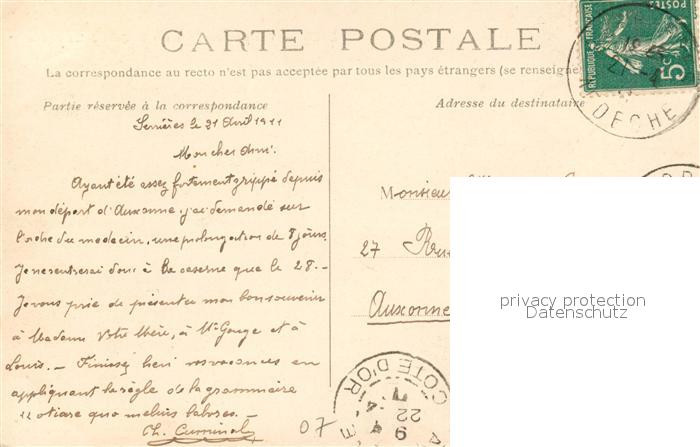 CARTE POSTALE
La correspondance au recto n'est pas acceptée par tous les pays étrangers (se renseigne
Partie réservée à la correspondance
Serrières le 21 Avril 1911
Mon cher Ami.
Ayant été assez fortement grippé depuis
mon départ d'Auxonne, j'ai demandé sur
l'ordre du médecin, une prolongation de 8 jours.
Je ne rentrerai donc à la caserne que le 28. -
Je vous prie de présenter mon bon souvenir
à Madame Votre Mère, à Mr Gouge et à
Louis. - Finissez bien vos vacances en
appliquant la règle de la grammaire
otiare quo melius labores. -
Ch.
07
Adresse du destinataire
Monsieur
27 Rue
Auxonne
POSTES
REPUBLIQUE FRANÇAISE
5c
DECHE
COTE D'OR
22
privacy protection
Datenschutz